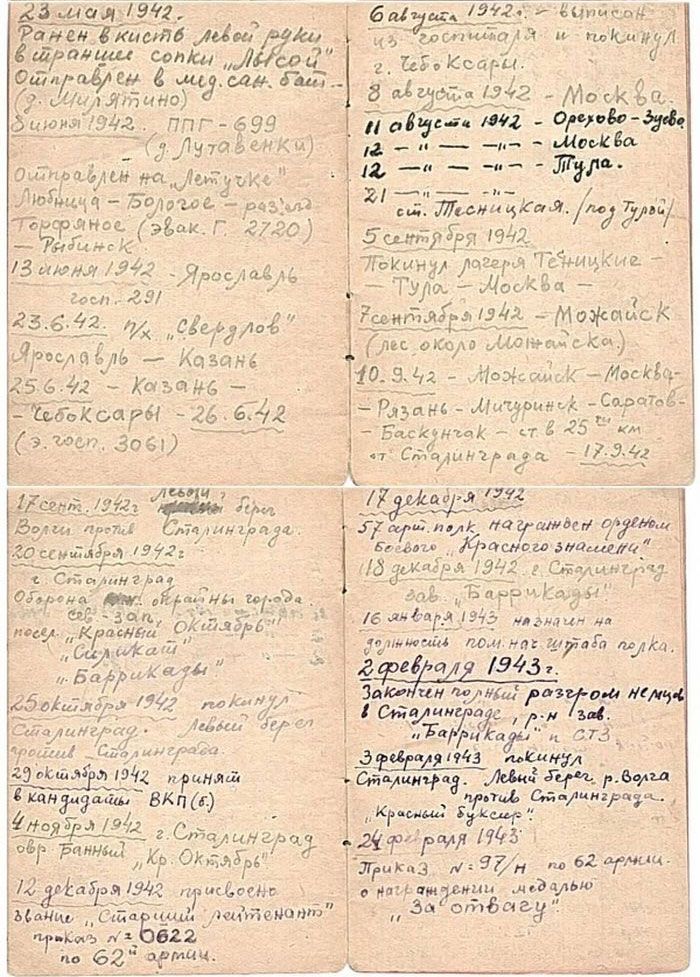 23 мая 1942.
Ранен в кисть левой руки
в траншее сопки „Лысой"
Отправлен в мед. сан. бат –
(д. Милятино)
8 июня 1942. ППГ – 699
(д. Лутавенки)
Отправлен на „Летучке"
Любница – Бологое – разъезд
Торфяное (эвак. Г. 2720)
– Рыбинск
13 июня 1942 – Ярославль
госп. 291
23.6.42. п/х „Свердлов"
Ярославль – Казань
25.6.42 – Казань –
– Чебоксары – 26.6.42
(э. госп. 3061)
6 августа 1942 г. – выписан
из госпиталя и покинул
г. Чебоксары.
8 августа 1942 – Москва.
11 августа 1942 – Орехово-Зуево
12 –„– –„– – Москва
12 –„– –„– – Тула.
21 –„– –„–
ст. Тесницкая. /под Тулой/
5 сентября 1942
Покинул лагеря Тёницкие –
– Тула – Москва –
7 сентября 1942 – Можайск
(лес около Можайска)
10.9.42 – Можайск – Москва –
– Рязань – Мичуринск – Саратов –
– Баскунчак – ст. в 25ти км
от Сталинграда – 17.9.42
17 сент. 1942 г левый берег
Волги против Сталинграда.
20 сентября 1942 г
г. Сталинград
Оборона окраины города.
сев-зап.
посел. „Красный Октябрь"
„Силикат"
„Баррикады"
25 октября 1942 покинул
Сталинград. Левый берег
против Сталинграда.
29 октября 1942 принят
в кандидаты ВКП(б.)
4 ноября 1942 г. Сталинград
овр. Банный „Кр. Октябрь"
12 декабря 1942 присвоено
звание „Старший лейтенант"
приказ № 0622
по 62й армии.
17 декабря 1942
57 арт. полк награжден орденом
Боевого „Красного знамени"
18 декабря 1942. г. Сталинград
зав. „Баррикады"
16 января 1943 назначен на
должность пом. нач штаба полка.
2 февраля 1943 г.
Закончен полный разгром немцев
в Сталинграде, р-н зав.
„Баррикады" и СТЗ
3 февраля 1943 покинул
Сталинград. Левый берег р. Волга
против Сталинграда.
„Красный буксир".
24 февраля 1943
Приказ № 97/н по 62 армии.
о награждении медалью
„За отвагу".